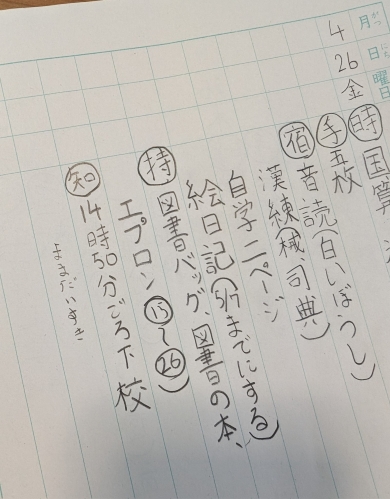 4月26日金曜日
時 国算
手 五枚
宿 音読(白いぼうし)
漢練(械、司、典)
自学二ページ
絵日記(5/7までにする)
持 図書バッグ、図書の本、
エプロン⑮〜㉖)
知 14時50分ごろ下校
ままだいすき